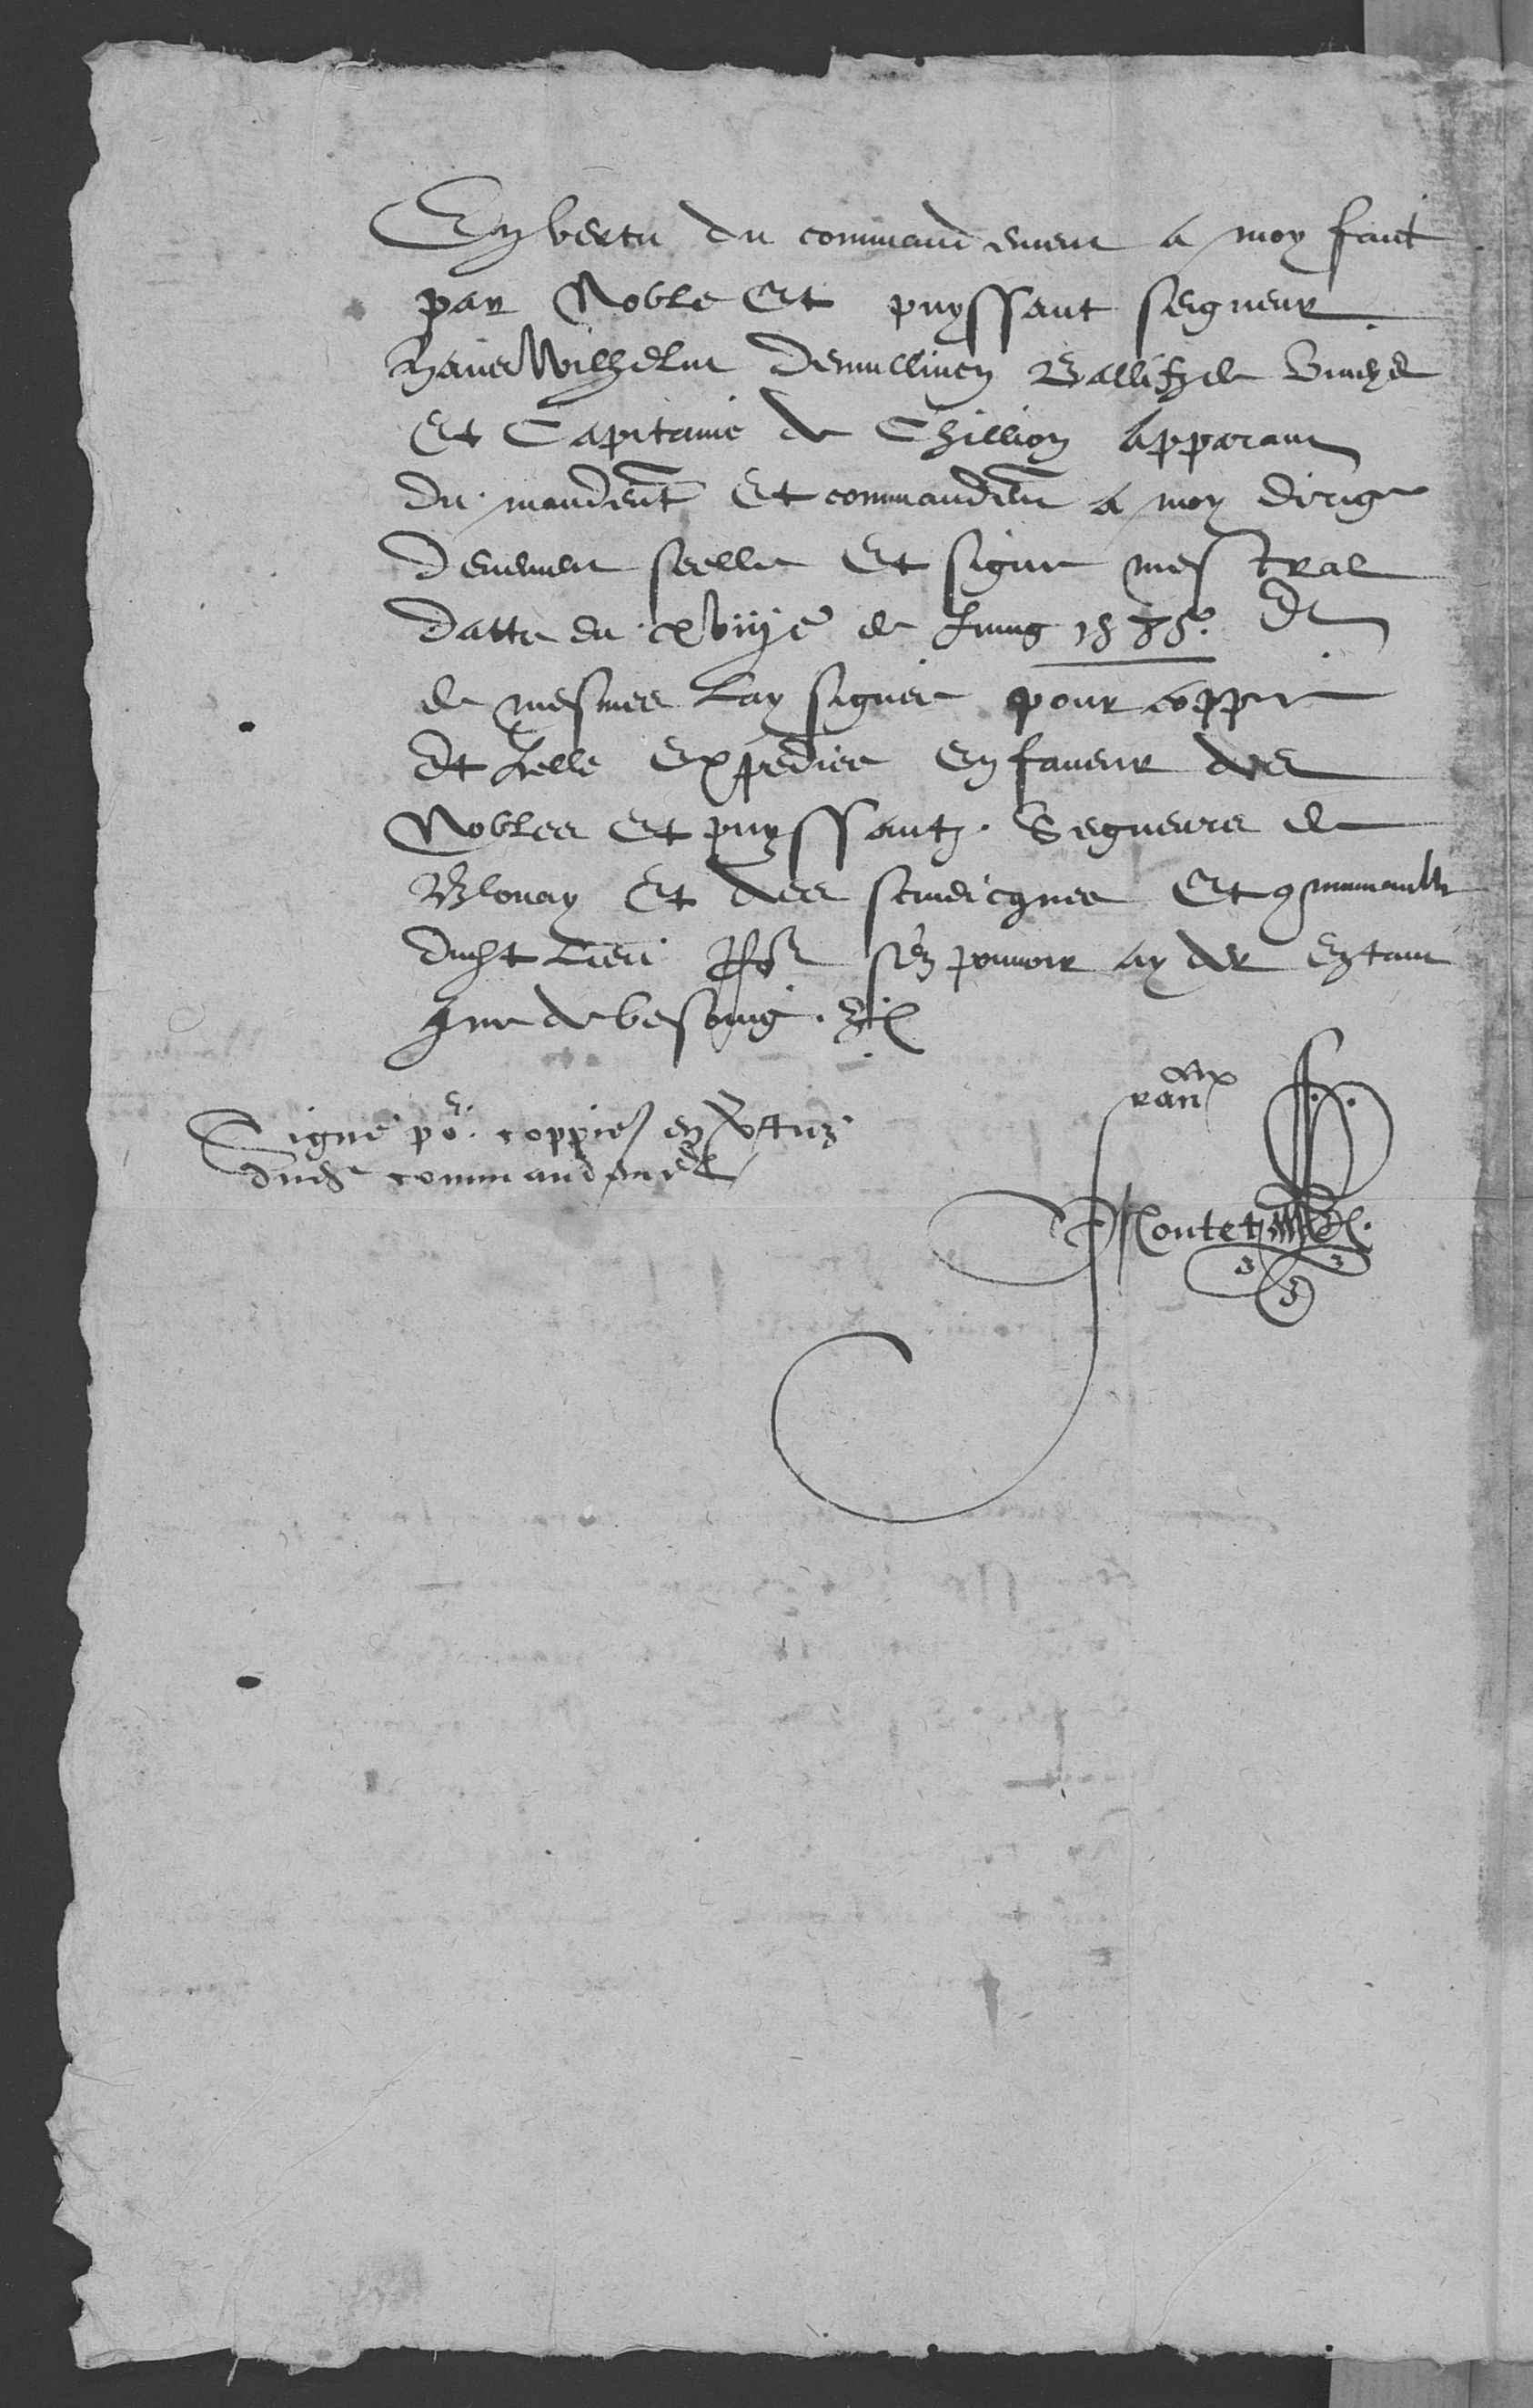 En vertu du commandement a moy faict
par Noble Et puyssant seigneur
Hans Wilhelm Demullinen Ballifz de Vivey
Et Capitaine de Chillion Apparant
du mandemt Et commandemt a moy dirige
deuement seelle Et signe mestral
datte du xviije de Juing 1585. Et
de mesmes Lay signee pour coppie
Et Jcelle Expediee En faveur des
Nobles Et puyssantz Segneurs de
Blonay Et des scindicques Et communaulte
dudict Lieu Por s'en pouvoir ayder En tant
que de besoing. Etc
Signe po. coppies en vertuz
dudt commandement
Montet